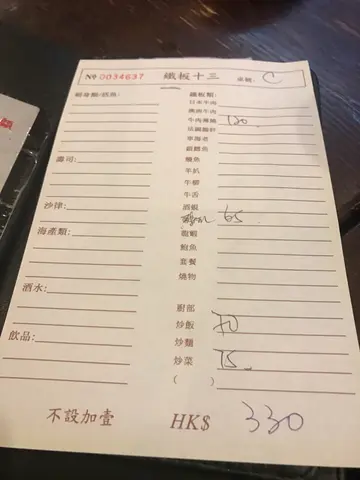 № 0034637 鐵板十三 桌號: C
刺身
壽司:
沙律:
海產類:
酒水:
飲品:
鐵板類:
日本牛肉
澳洲牛肉
牛肉薄燒 120
法國鵝肝
車海老
銀鱈魚
鰻魚
羊扒
牛柳
牛舌
65
龍蝦
鮑魚
套餐
燒物
廚部
炒飯 70
炒麵
炒菜 75
( )
不設加壹 HK$ 330